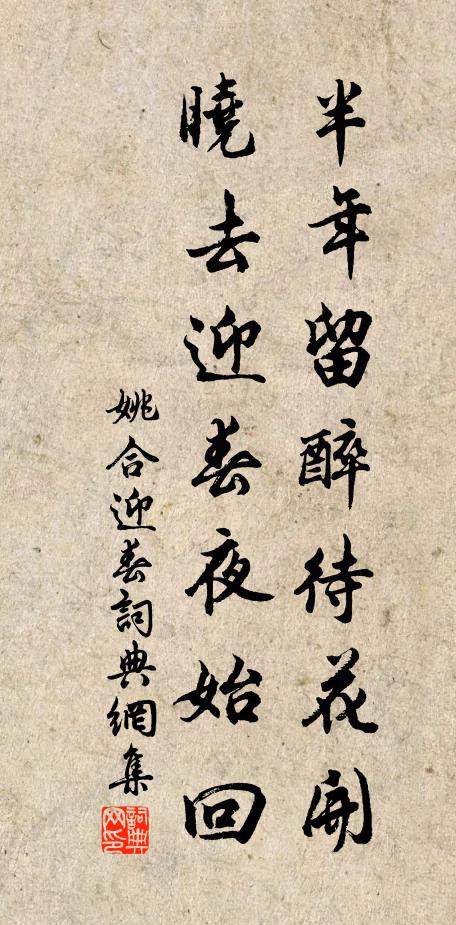 半年留醉待花開
曉去迎春夜始回
姚合迎春詞典網集
詞典網印